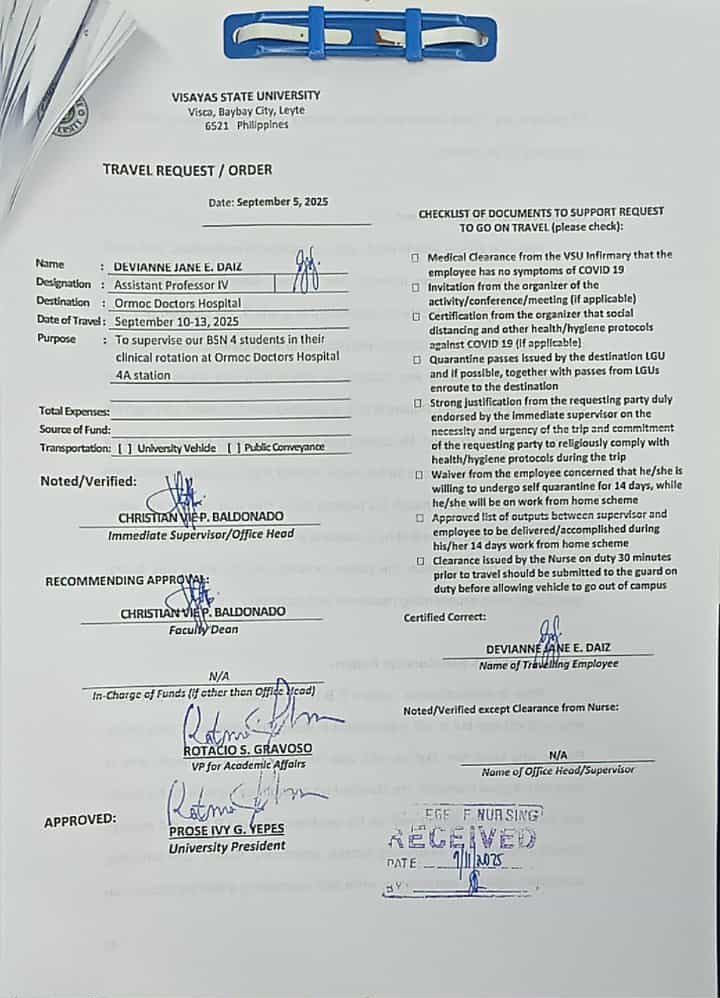 VISAYAS STATE UNIVERSITY
Visca, Baybay City, Leyte
6521 Philippines
TRAVEL REQUEST / ORDER
Date: September 5, 2025
Name : DEVIANNE JANE E. DAIZ
Designation : Assistant Professor IV
Destination : Ormoc Doctors Hospital
Date of Travel : September 10-13, 2025
Purpose : To supervise our BSN 4 students in their
clinical rotation at Ormoc Doctors Hospital
4A station
Total Expenses:
Source of Fund:
Transportation: [ ] University Vehicle [ ] Public Conveyance
Noted/Verified:
CHRISTIAN VIE P. BALDONADO
Immediate Supervisor/Office Head
RECOMMENDING APPROVAL:
CHRISTIAN VIE P. BALDONADO
Faculty Dean
N/A
In-Charge of Funds (if other than Office Head)
ROTACIO S. GRAVOSO
VP for Academic Affairs
APPROVED:
PROSE IVY G. YEPES
University President
CHECKLIST OF DOCUMENTS TO SUPPORT REQUEST
TO GO ON TRAVEL (please check):
☐ Medical Clearance from the VSU Infirmary that the
employee has no symptoms of COVID 19
☐ Invitation from the organizer of the
activity/conference/meeting (if applicable)
☐ Certification from the organizer that social
distancing and other health/hygiene protocols
against COVID 19 (if applicable)
☐ Quarantine passes issued by the destination LGU
and if possible, together with passes from LGUs
enroute to the destination
☐ Strong justification from the requesting party duly
endorsed by the immediate supervisor on the
necessity and urgency of the trip and commitment
of the requesting party to religiously comply with
health/hygiene protocols during the trip
☐ Waiver from the employee concerned that he/she is
willing to undergo self quarantine for 14 days, while
he/she will be on work from home scheme
☐ Approved list of outputs between supervisor and
employee to be delivered/accomplished during
his/her 14 days work from home scheme
☐ Clearance issued by the Nurse on duty 30 minutes
prior to travel should be submitted to the guard on
duty before allowing vehicle to go out of campus
Certified Correct:
DEVIANNE JANE E. DAIZ
Name of Travelling Employee
Noted/Verified except Clearance from Nurse:
N/A
Name of Office Head/Supervisor
EGE F NURSING
RECEIVED
DATE 9/11/2025
BY: